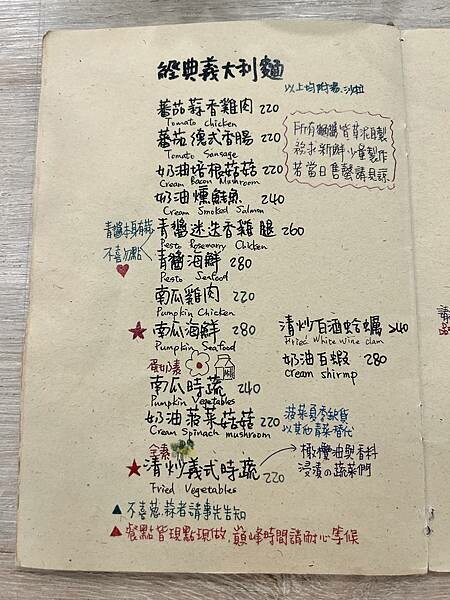 經典義大利麵
以上均附湯、沙拉
蕃茄蒜香雞肉 220
Tomato chicken
蕃茄德式香腸 220
Tomato Sausage
奶油培根菇菇 220
Cream Bacon Mushroom
奶油燻鮭魚 240
Cream Smoked Salmon
所有麵醬皆草泥自製
務求新鮮少量製作
若當日售罄請見諒
青醬本身有蒜
不喜勿點
青醬迷迭香雞腿 260
Pesto Rosemary Chicken
青醬海鮮 280
Pesto Seafood
南瓜雞肉 220
Pumpkin Chicken
★南瓜海鮮 280
Pumpkin Seafood
清炒白酒蛤蠣 240
Fried White Wine clam
奶油白蝦 280
cream shirmp
蛋奶素
南瓜時蔬 240
Pumpkin Vegetables
奶油菠菜菇菇 220
Cream Spinach mushroom
菠菜夏季缺貨
以其他青菜替代
全素
★清炒義式時蔬 220
Fried Vegetables
橄欖油與香料
浸漬の蔬菜們
▲不喜蔥、蒜者請事先告知
▲餐點皆現點現做，巔峰時間請耐心等候